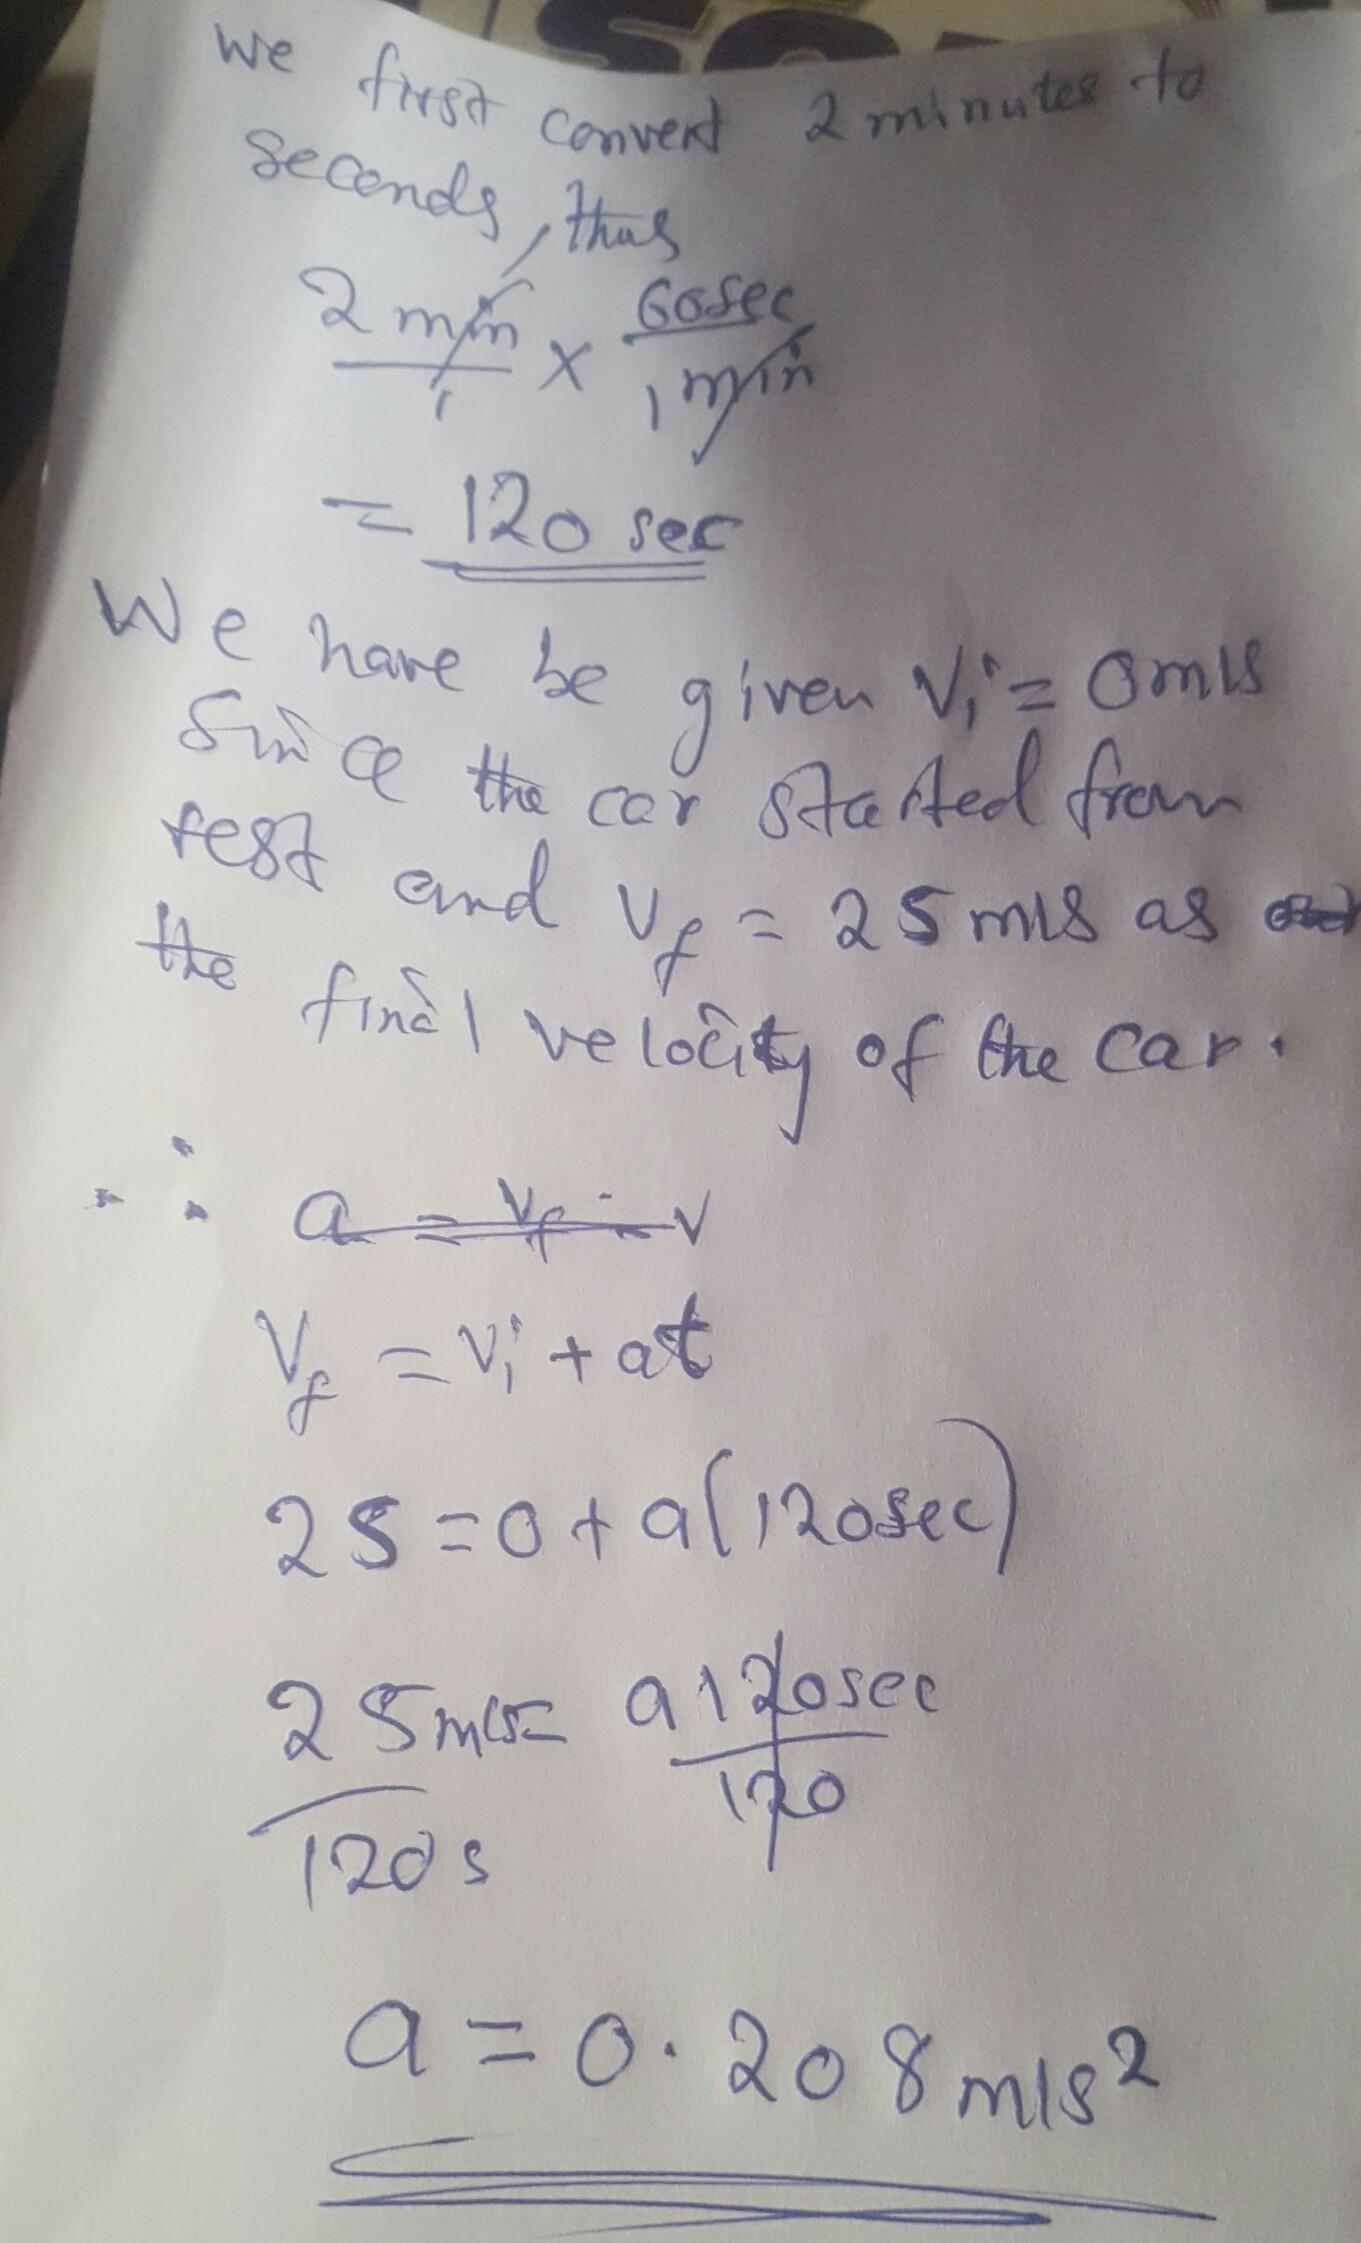 We first convert 2 minutes to
seconds, thus
2 min/1 × 60sec/1 min
= 120 sec
We have be given Vi = 0m/s
Since the car started from
rest and Vf = 25 m/s as
the final velocity of the car.
∴ a = Vf - V
Vf = Vi + at
25 = 0 + a(120sec)
25m/s/120s = a120sec/120
a = 0.208 m/s²